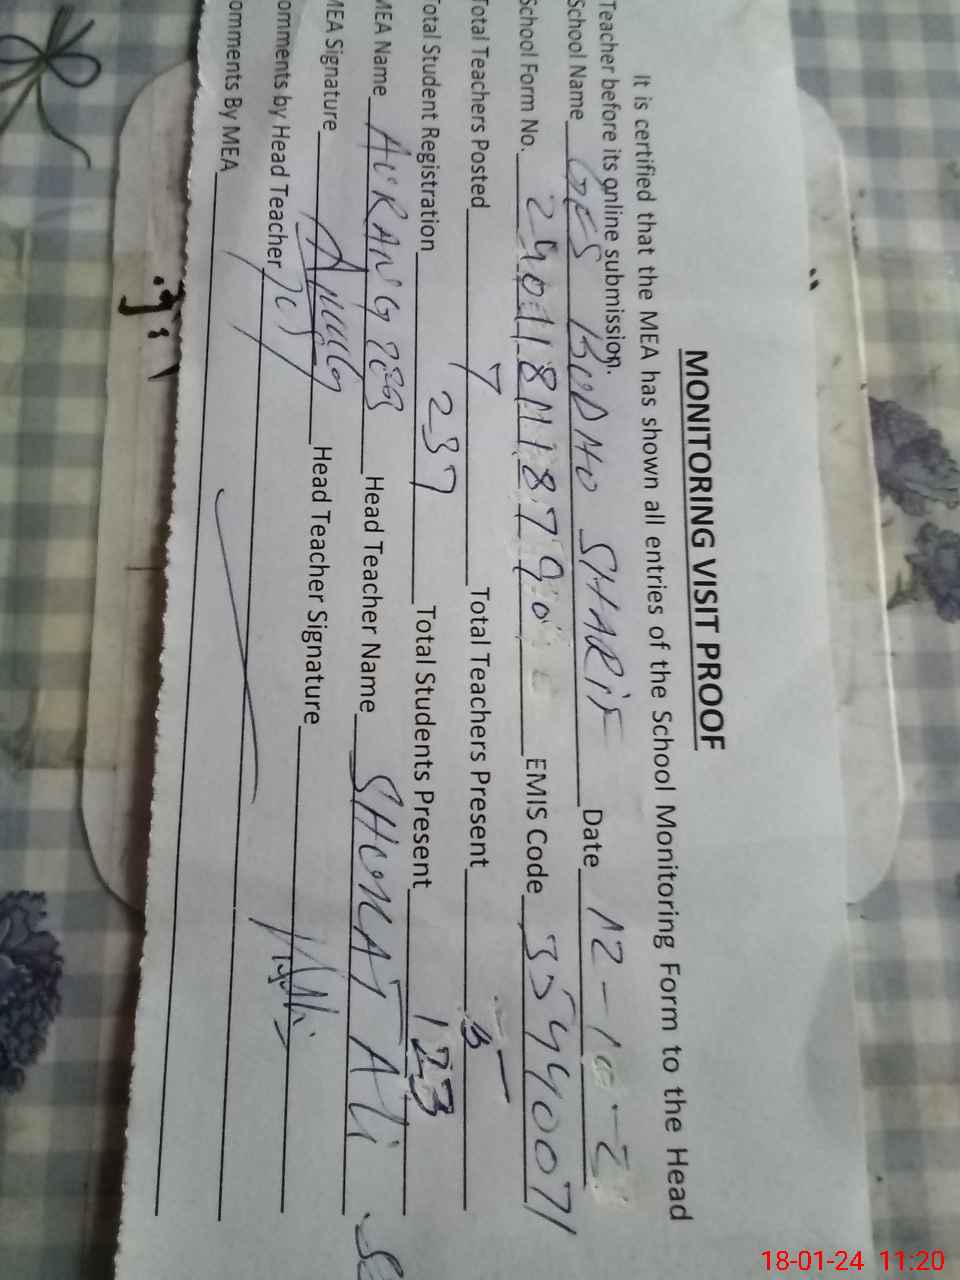 MONITORING VISIT PROOF
It is certified that the MEA has shown all entries of the School Monitoring Form to the Head
Teacher before its online submission.
School Name GES BUDHO SHARIF Date 12-10-2
School Form No. EMIS Code 35440071
Total Teachers Posted 7 Total Teachers Present 5
Total Student Registration 237 Total Students Present 123
MEA Name AURANGZEB Head Teacher Name SHUKAT ALI
MEA Signature Head Teacher Signature
omments by Head Teacher
omments By MEA
18-01-24 11:20